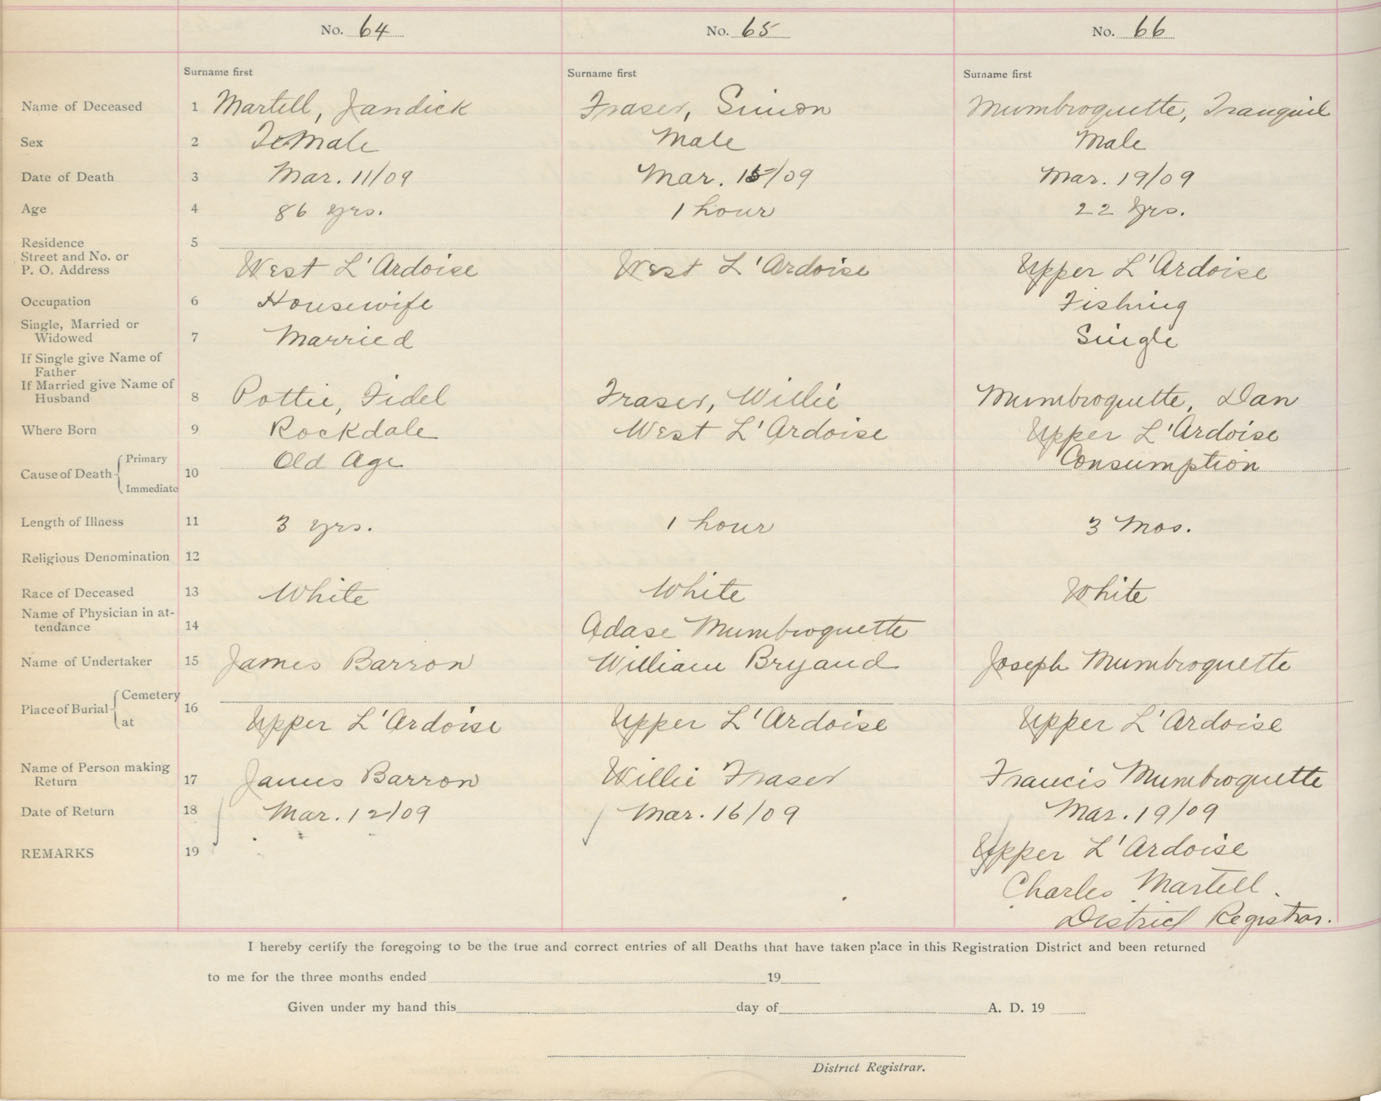 No. 64 No. 65 No. 66
Surname first Surname first Surname first
Name of Deceased 1 Martell, Jandick Fraser, Simon Mumbroquette, Tranquil
Sex 2 Female Male Male
Date of Death 3 Mar. 11/09 Mar. 15/09 Mar. 19/09
Age 4 86 yrs. 1 hour 22 yrs.
Residence 5
Street and No. or
P. O. Address West L'Ardoise West L'Ardoise Upper L'Ardoise
Occupation 6 Housewife Fishing
Single, Married or
Widowed 7 Married Single
If Single give Name of
Father
If Married give Name of
Husband 8 Pottie, Fidel Fraser, Willie Mumbroquette, Dan
Where Born 9 Rockdale West L'Ardoise Upper L'Ardoise
Cause of Death Primary 10 Old Age Consumption
Immediate
Length of Illness 11 3 yrs. 1 hour 3 Mos.
Religious Denomination 12
Race of Deceased 13 White White White
Name of Physician in at-
tendance 14 Adase Mumbroquette
Name of Undertaker 15 James Barron William Bryand Joseph Mumbroquette
Place of Burial Cemetery 16
at Upper L'Ardoise Upper L'Ardoise Upper L'Ardoise
Name of Person making
Return 17 James Barron Willie Fraser Francis Mumbroquette
Date of Return 18 Mar. 12/09 Mar. 16/09 Mar. 19/09
REMARKS 19 Upper L'Ardoise
Charles Martell.
District Registrar.
I hereby certify the foregoing to be the true and correct entries of all Deaths that have taken place in this Registration District and been returned
to me for the three months ended 19
Given under my hand this day of A. D. 19
District Registrar.